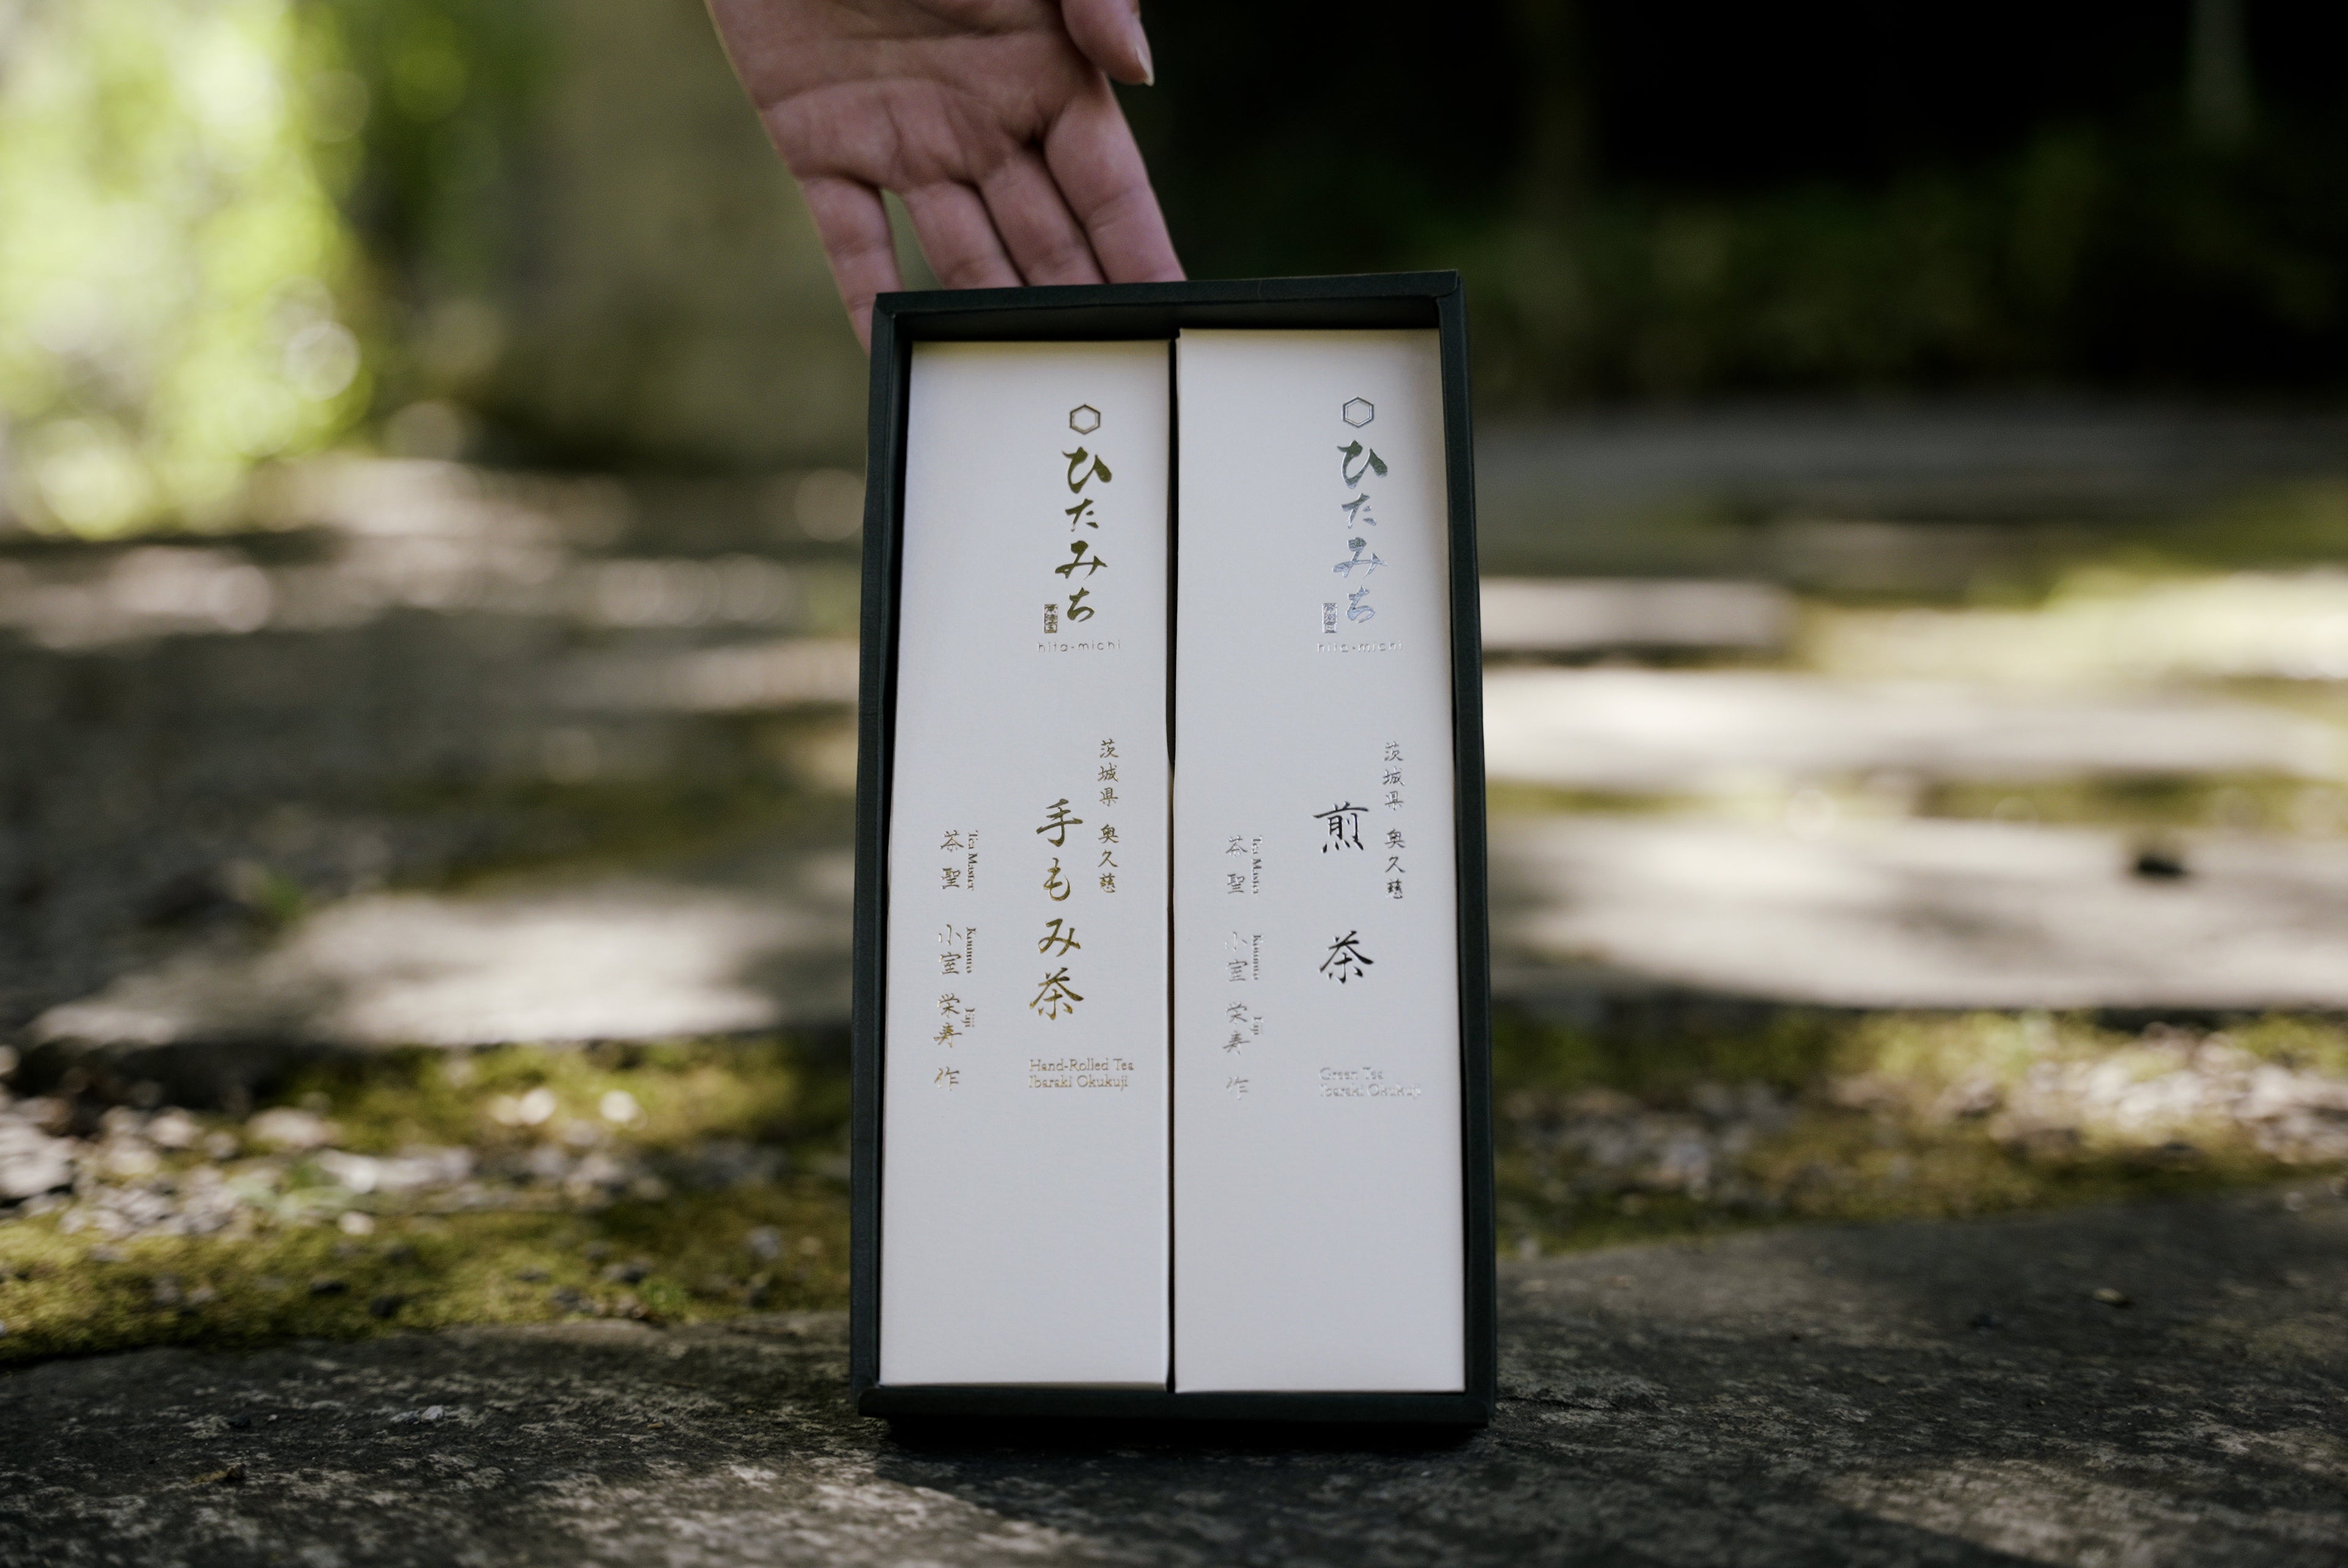 ひたみち
hita-michi
茨城県 奥久慈
手もみ茶
Hand-Rolled Tea
Ibaraki Okukuji
Tea Master Komuro Eiji
茶聖 小室栄寿 作
ひたみち
hita-michi
茨城県 奥久慈
煎茶
Green Tea
Ibaraki Okukuji
Tea Master Komuro Eiji
茶聖 小室栄寿 作